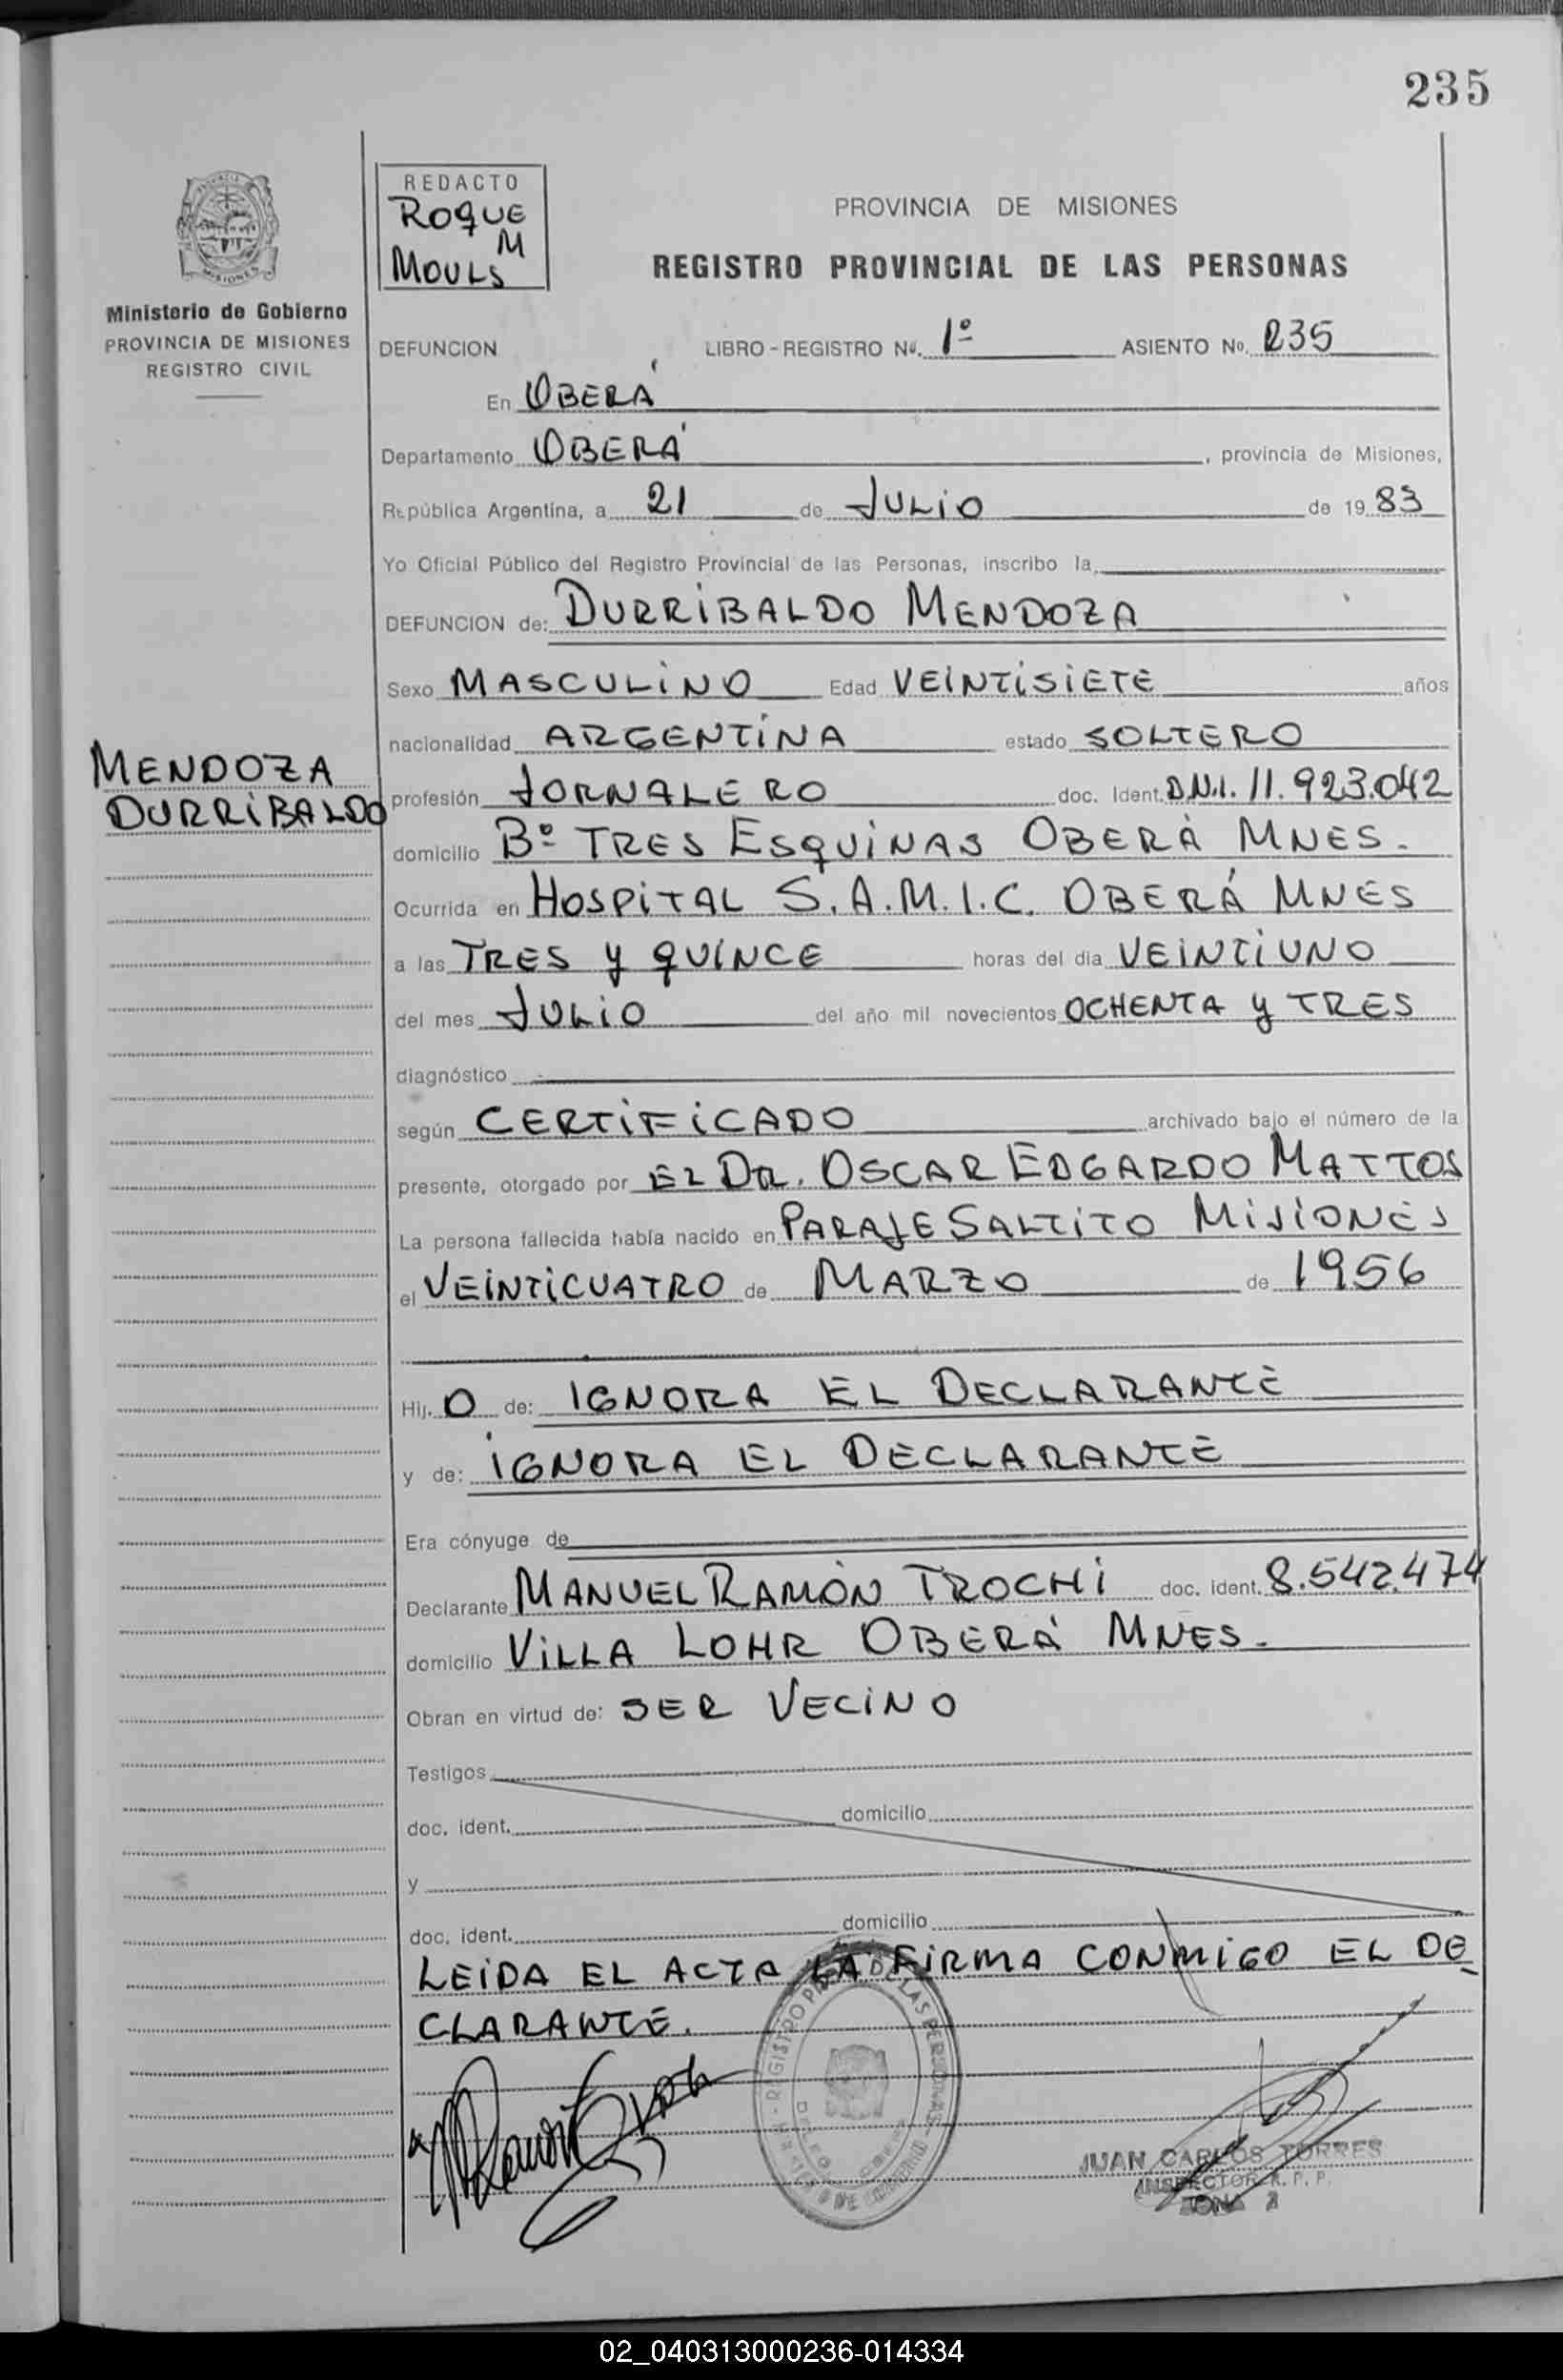 235
REDACTO
ROQUE
M
MOULS
PROVINCIA DE MISIONES
REGISTRO PROVINCIAL DE LAS PERSONAS
MISIONES
Ministerio de Gobierno
PROVINCIA DE MISIONES
REGISTRO CIVIL
DEFUNCION LIBRO - REGISTRO Nº. 1º ASIENTO Nº. 235
En OBERÁ
Departamento OBERÁ, provincia de Misiones,
República Argentina, a 21 de JULIO de 19 83
Yo Oficial Público del Registro Provincial de las Personas, inscribo la
DEFUNCION de: DURRIBALDO MENDOZA
Sexo MASCULINO Edad VEINTISIETE años
nacionalidad ARGENTINA estado SOLTERO
MENDOZA
DURRIBALDO
profesión JORNALERO doc. Ident. D.N.I. 11.923.042
domicilio Bº TRES ESQUINAS OBERÁ MNES.
Ocurrida en HOSPITAL S.A.M.I.C. OBERÁ MNES
a las TRES Y QUINCE horas del dia VEINTIUNO
del mes JULIO del año mil novecientos OCHENTA Y TRES
diagnóstico
según CERTIFICADO archivado bajo el número de la
presente, otorgado por EL DR. OSCAR EDGARDO MATTOS
La persona fallecida había nacido en PARAJE SALTITO MISIONES
el VEINTICUATRO de MARZO de 1956
Hij. O de: IGNORA EL DECLARANTE
y de: IGNORA EL DECLARANTE
Era cónyuge de
Declarante MANUEL RAMÓN TROCHI doc. ident. 8.542.474
domicilio VILLA LOHR OBERÁ MNES.
Obran en virtud de: SER VECINO
Testigos
doc. ident. domicilio
y
doc. ident. domicilio
LEIDA EL ACTA LA FIRMA CONMIGO EL DE
CLARANTE.
JUAN CARLOS TORRES
INSPECTOR R. P. P.
ZONA 2
02_040313000236-014334